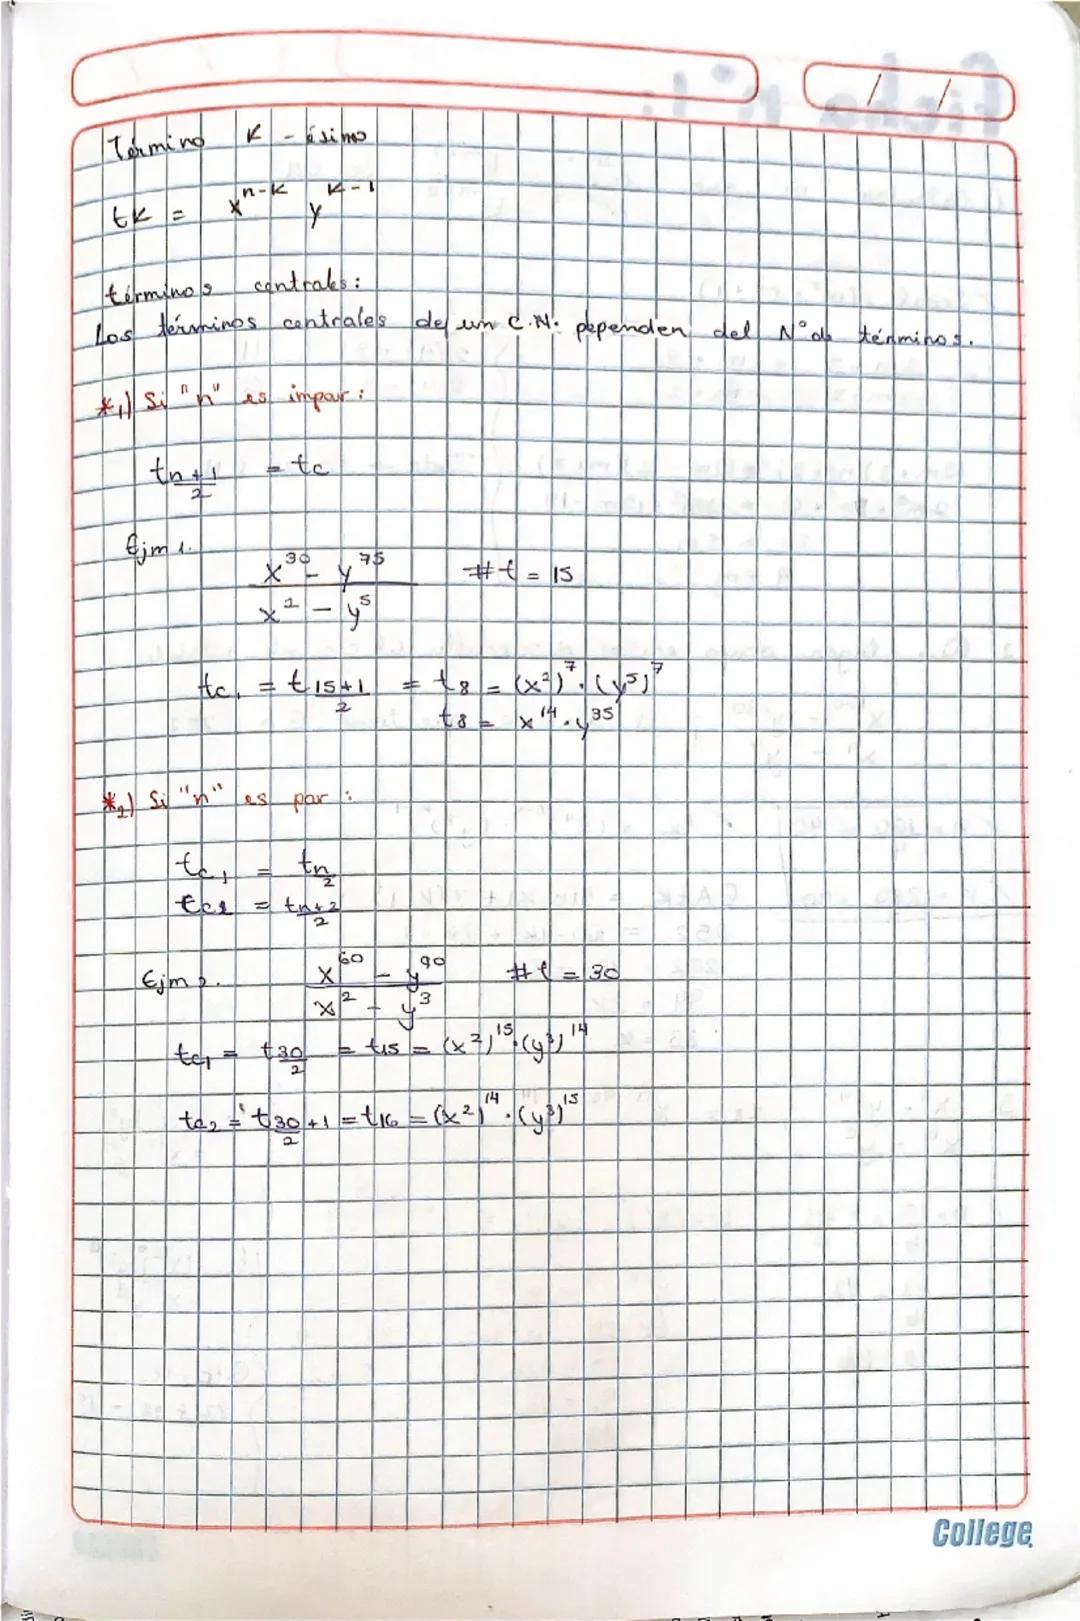 Término K-ésimo
tk = x^n-k y^k-1
términos centrales:
Los términos centrales de un C.N. pependen del N° de términos.
*1) Si "n" es impar:
t n+1/2 = tc
Ejm 1.
x^30 - y^75 / x^2 - y^5 #t = 15
tc1 = t 15+1/2 = t8 = (x^2)^7 . (y^5)^7
t8 = x^14 . y^35
*2) Si "n" es par:
tc1 = t n/2
tc2 = t n+2/2
Ejm 2. x^60 - y^90 / x^2 - y^3 #t = 30
tc1 = t 30/2 = t15 = (x^2)^15 . (y^3)^14
tc2 = t 30/2 +1 = t16 = (x^2)^14 . (y^3)^15
College